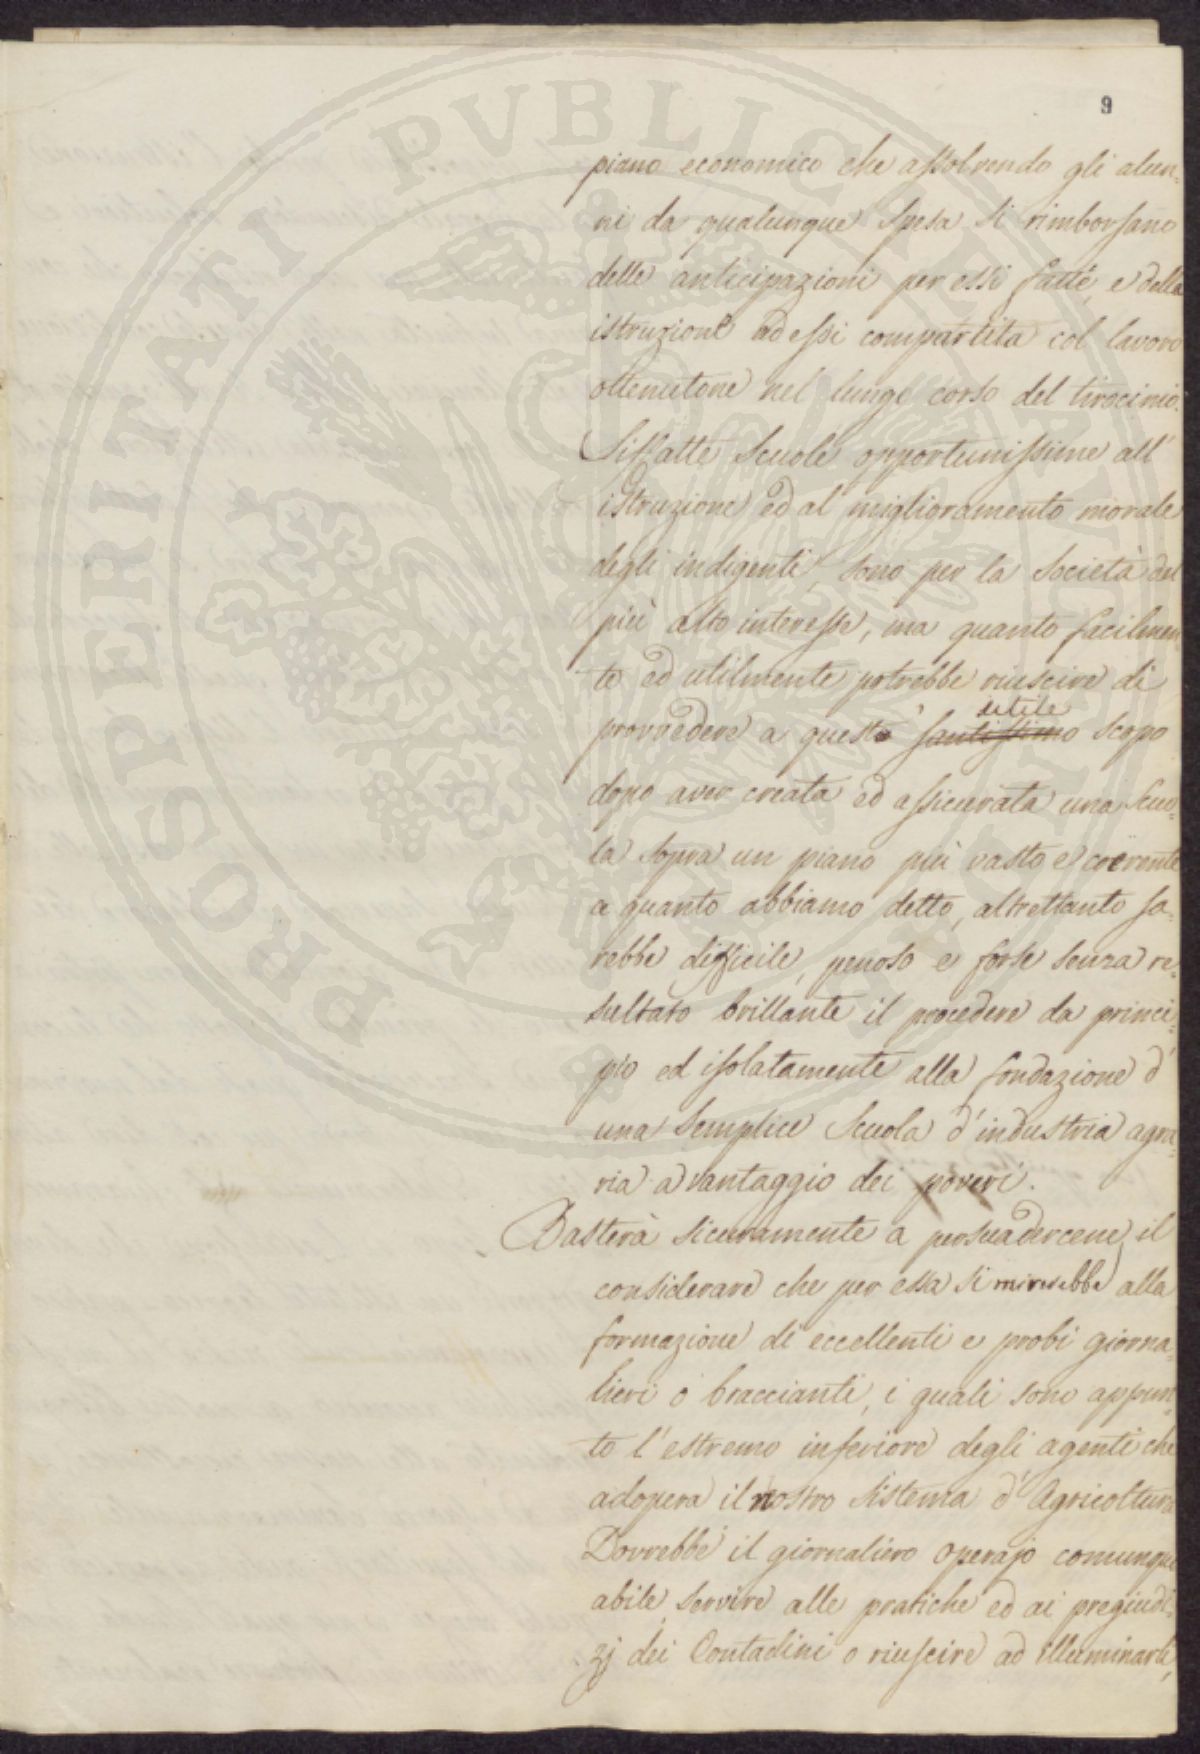 9
piano economico che assolvendo gli alun-
ni da qualunque spesa si rimborsano
delle anticipazioni per essi fatte, e della
istruzione ad essi compartita col lavoro
ottenutone nel lungo corso del tirocinio.
Siffatte Scuole opportunissime all'
istruzione ed al miglioramento morale
degli indigenti, sono per la Società del
più alto interesse, ma quanto facilmen-
te ed utilmente potrebbe riuscire di
utile
provvedere a questo santissimo scopo
dopo aver creata ed assicurata una scuo-
la sopra un piano più vasto e coerente
a quanto abbiamo detto, altrettanto sa-
rebbe difficile, penoso e forse senza re-
sultato brillante il procedere da princi-
pio ed isolatamente alla fondazione d'
una semplice Scuola d'industria agra-
ria a vantaggio dei poveri.
Basterà sicuramente a persuadercene, il
considerare che per essa si mirerebbe alla
formazione di eccellenti e probi giorna-
lieri o braccianti, i quali sono appun-
to l'estremo inferiore degli agenti che
adopera il nostro sistema d'Agricoltura
Dovrebbe il giornaliero operajo comunque
abile, servire alle pratiche ed ai pregiudi-
zj dei Contadini o riuscire ad illuminarli,
PROSPERITATI PVBLICAE